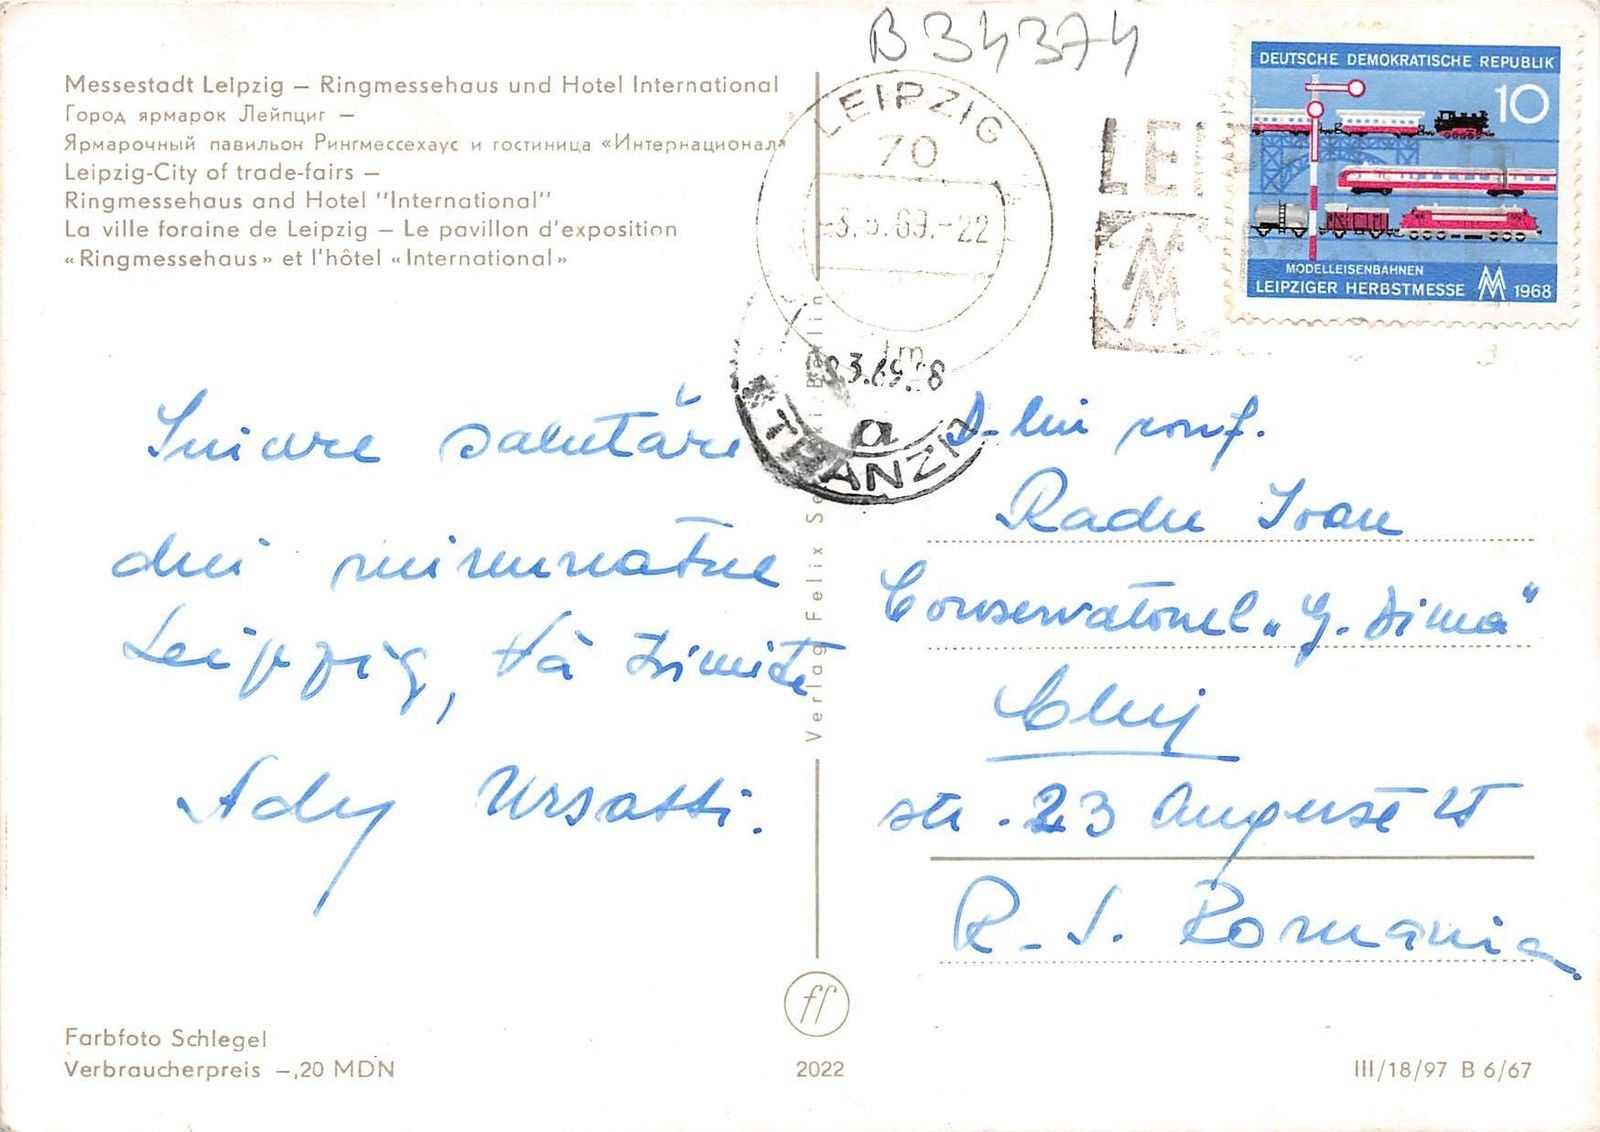 B 34374
Messestadt Leipzig – Ringmessehaus und Hotel International
Город ярмарок Лейпциг –
Ярмарочный павильон Рингмессехаус и гостиница «Интернационал»
Leipzig-City of trade-fairs –
Ringmessehaus and Hotel "International"
La ville foraine de Leipzig – Le pavillon d'exposition
«Ringmessehaus» et l'hôtel «International»
LEIPZIG
70
-3.3.69.-22
lm
LEI
MM
DEUTSCHE DEMOKRATISCHE REPUBLIK
10
MODELLEISENBAHNEN
LEIPZIGER HERBSTMESSE MM 1968
3.69.
TRANZIT
a
Sincere salutări
din minunatul
Leipzig, vă trimite
Ady Ursatti.
D-lui conf.
Radu Ioan
Conservatorul „G. Dima"
Cluj
str. 23 August
R. S. Romania
Verlag Felix Berlin
ff
Farbfoto Schlegel
Verbraucherpreis –,20 MDN
2022
III/18/97 B 6/67